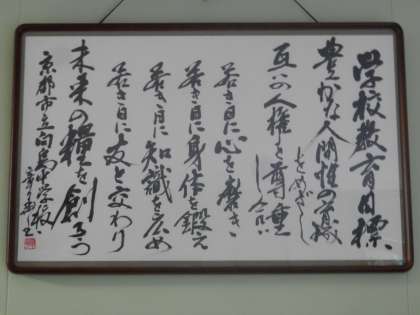 学校教育目標
豊かな人間性の育成
をめざし
互いの人権を尊重
し合い
若き日に心を磨き
若き日に身体を鍛え
若き日に知識を広め
若き日に友と交わり
未来の糧を創ろう
京都市立向島中学校